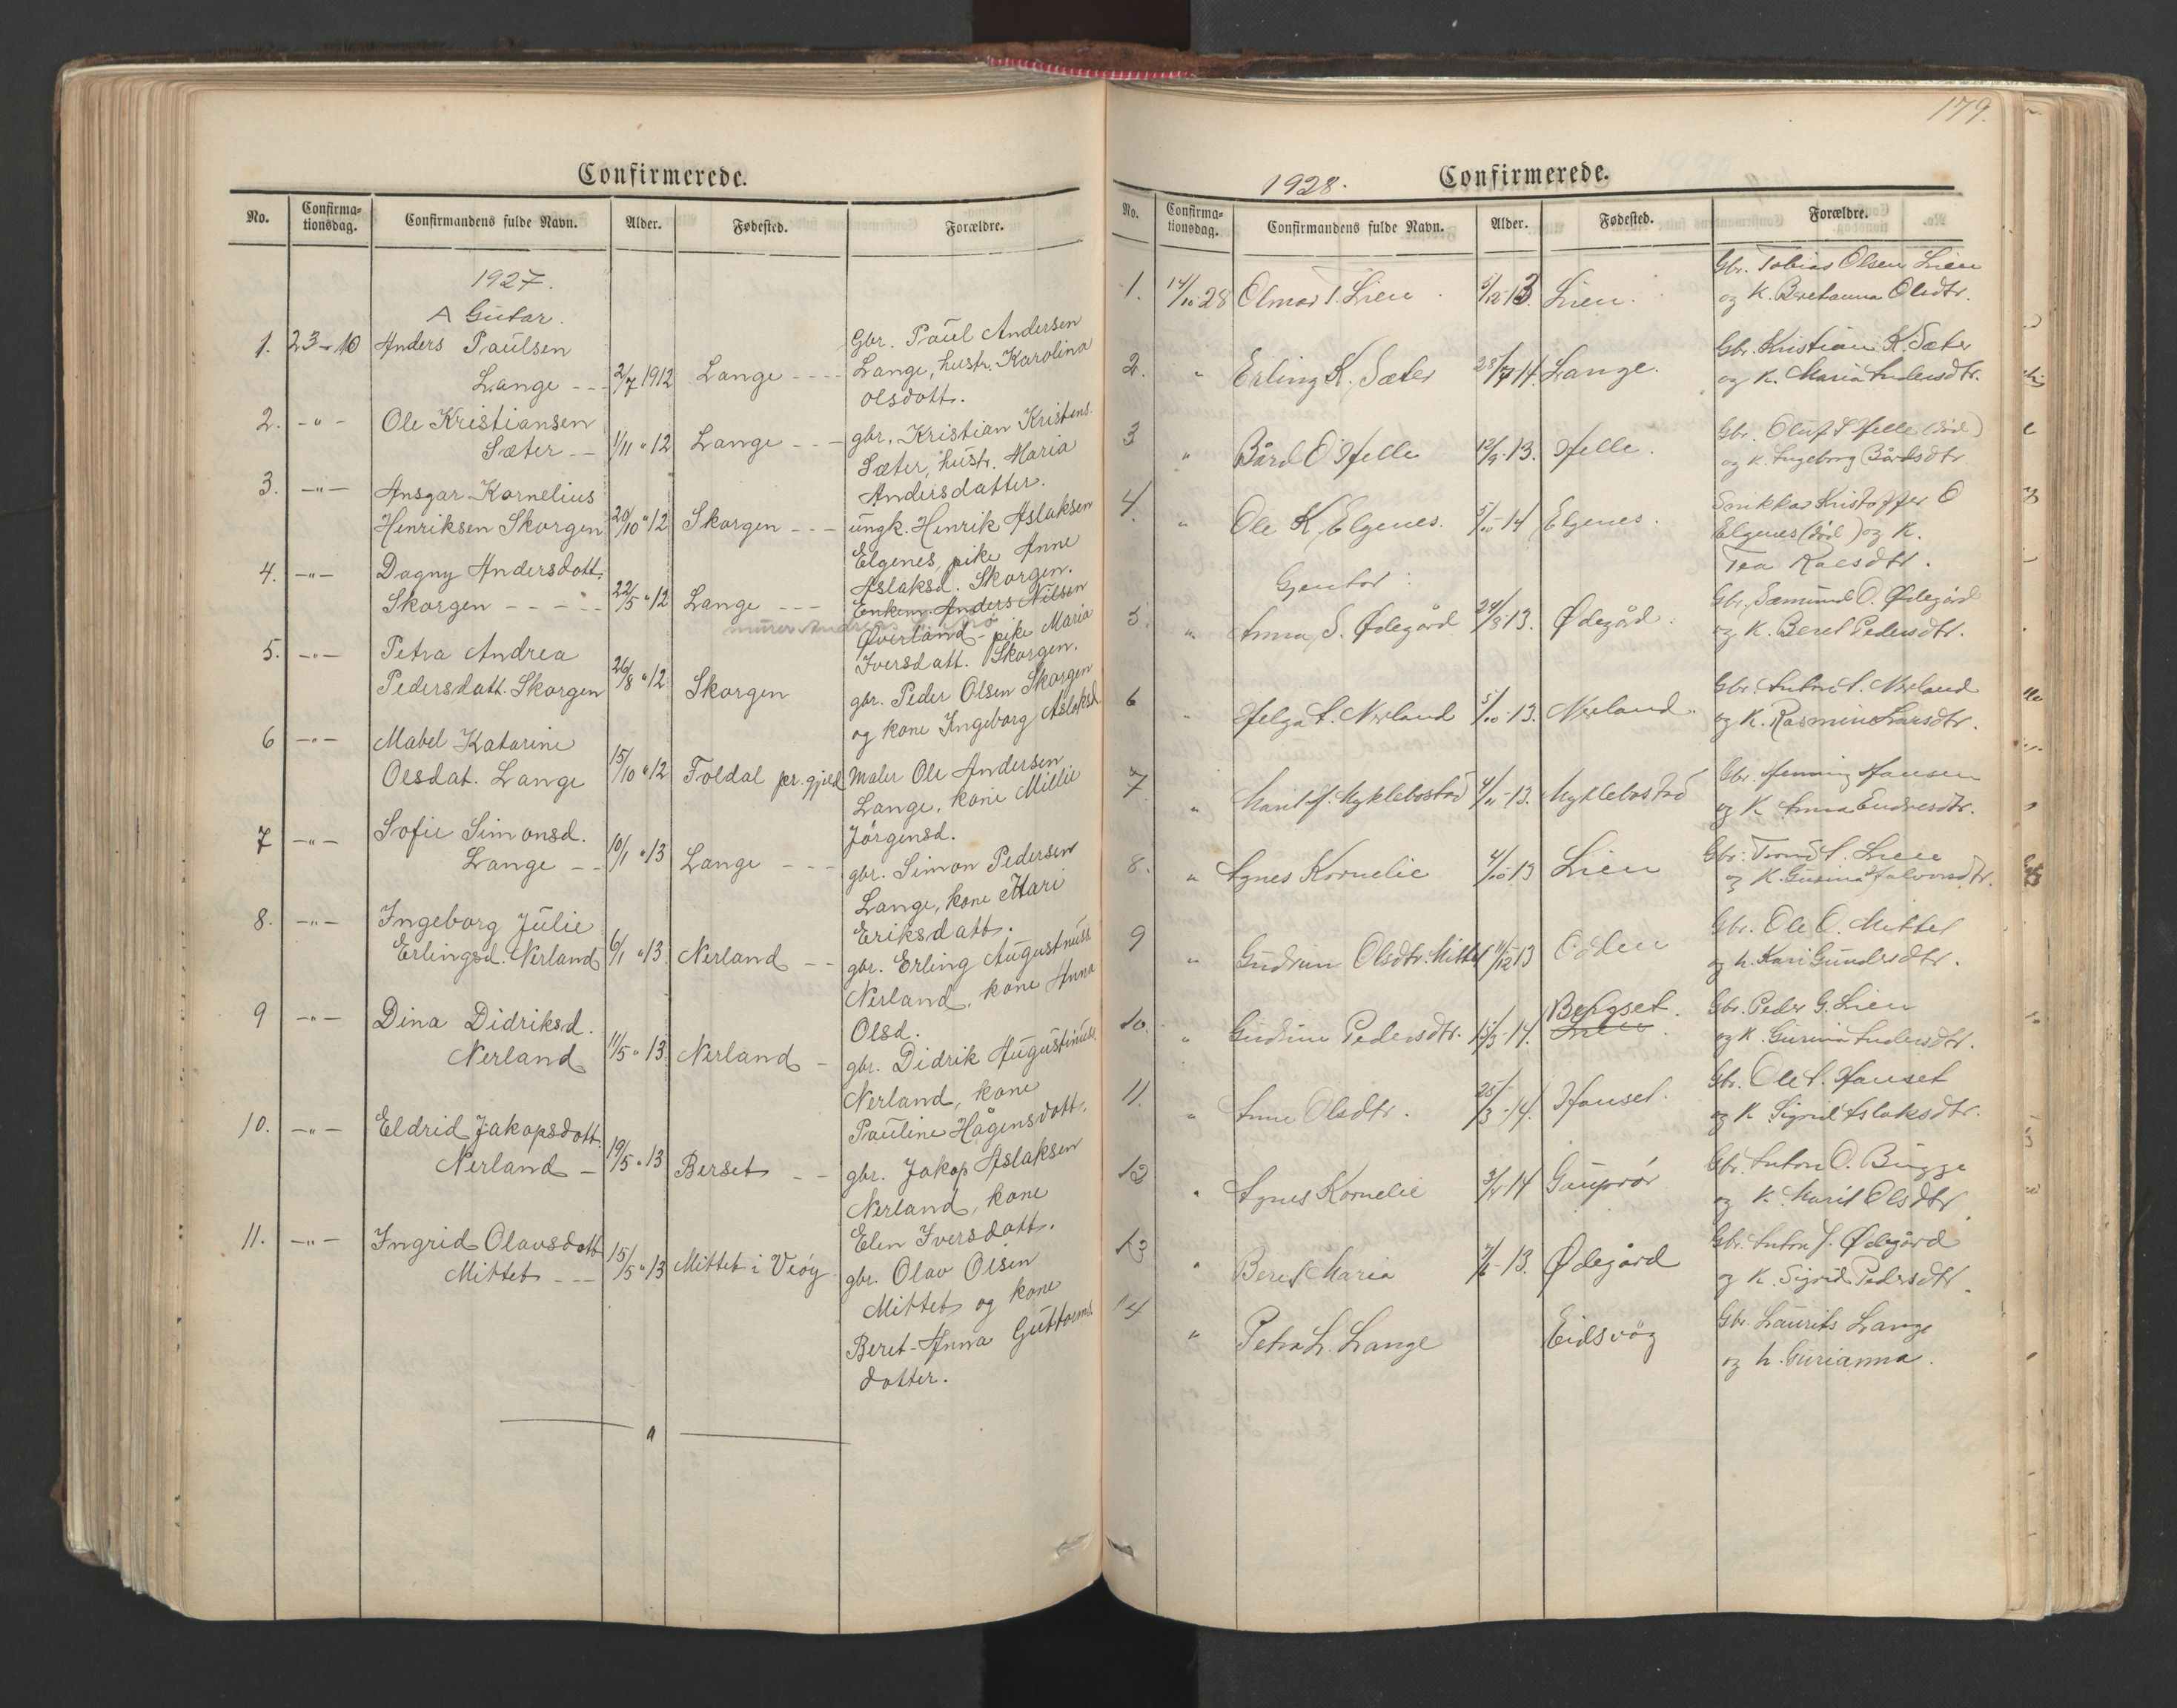 Confirmerede.
No. Confirma-tionsdag. Confirmandens fulde Navn. Alder. Fødested. Forældre.
1927.
A Gutar.
1. 23-10 Anders Paulsen Gbr. Paul Andersen
Lange -- 2/7 1912 Lange ---- Lange, hustr. Karolina
Olsdott.
2. -"- Ole Kristiansen gbr. Kristian Kristens.
Sæter -- 1/11 " 12 Lange --- Sæter, hustr. Maria
Andersdatter.
3. -"- Ansgar Kornelius
Henriksen Skorgen 20/10 " 12 Skorgen --- ungk. Henrik Aslaksen
Elgenes, pike Anne
Aslaksd. Skorgen.
4. -"- Dagny Andersdott.
Skorgen ---- 22/5 " 12 Lange --- Enkem. Anders Nilsen
murer
Øverland - pike Maria
Iversdatt. Skorgen.
5. -"- Petra Andrea
Pedersdatt. Skorgen 26/8 " 12 Skorgen gbr. Peder Olsen Skorgen
og kone Ingeborg Aslaksd.
6 -"- Mabel Katarine
Olsdat. Lange 15/10 " 12 Foldal pr.gjeld Maler Ole Andersen
Lange, kone Millie
Jørgensd.
7 -"- Sofie Simonsd.
Lange -- 10/1 " 13 Lange --- gbr. Simon Pedersen
Lange, kone Mari
Eriksdatt.
8. -"- Ingeborg Julie
Erlingsd. Nerland 6/1 " 13. Nerland -- gbr. Erling Augustinuss.
Nerland, kone Anna
Olsd.
9 -"- Dina Didriksd.
Nerland 11/5 " 13. Nerland - gbr. Didrik Augustinuss.
Nerland, kone
Pauline Hågensdott.
10. -"- Eldrid Jakopsdott.
Nerland - 19/5 " 13 Berset -- gbr. Jakop Aslaksen
Nerland, kone
Elen Iversdott.
11. -"- Ingrid Olavsdott
Mittet --- 15/5 " 13 Mittet i Veøy gbr. Olav Olsen
Mittet og kone
Beret-Anna Guttorms
dotter.
179.
1928. Confirmerede.
No. Confirma-tionsdag. Confirmandens fulde Navn. Alder. Fødested. Forældre.
1. 14/10 28 Olmar T. Lien 5/12-13. Lien. Gbr. Tobias Olsen Lien
og K. Bretanna Olsdtr.
2. " Erling K. Sæter 28/7-14. Lange. Gbr. Kristian K. Sæter
og K. Maria Andersdtr.
3 " Bård O Helle 12/9-13. Helle. Gbr. Oluf Helle (død)
og K. Ingeborg Bårdsdtr
4. " Ole K. Elgenes. 5/10-14 Elgenes. Snikkar Kristoffer O
Elgenes (død) og K.
Tea Roesdtr.
Gjentor
5. " Anna S. Ødegård 24/8-13. Ødegård. Gbr. Sæmund O. Ødegård
og K. Beret Pedersdtr.
6 " Helga A. Nerland 5/10-13. Nerland. Gbr. Anton A. Nerland
og K. Rasmine Larsdtr.
7 " Marit H. Myklebostad 4/11-13. Myklebostad Gbr. Henning Hansen
og K Anna Endresdtr.
8. " Agnes Kornelie 4/10-13 Lien Gbr. Trond A. Lien
og K. Gurina Halvorsdtr.
9 " Gudrun Olsdtr. Mittet 11/12-13 Odden Gbr. Ole O. Mittet
og K. Kari Gundersdtr.
10. " Gudrun Pedersdtr. 15/3-14. Bergset. Lien. Gbr. Peder G. Lien
og K. Gurina Andersdtr.
11. " Anne Olsdtr. 25/3-14. Hanset. Gbr. Ole A. Hanset
og K Sigrid Aslaksdtr.
12 " Agnes Kornelie 3/4 14 Gauprør Gbr. Anton O. Bugge
og K. Marit Olsdtr.
13 " Beret Maria 13. Ødegård Gbr. Anton J. Ødegård
og K. Sigrid Pedersdtr.
14 " Petra L. Lange Eidsvåg Gbr. Laurits Lange
og K. Gurianna.